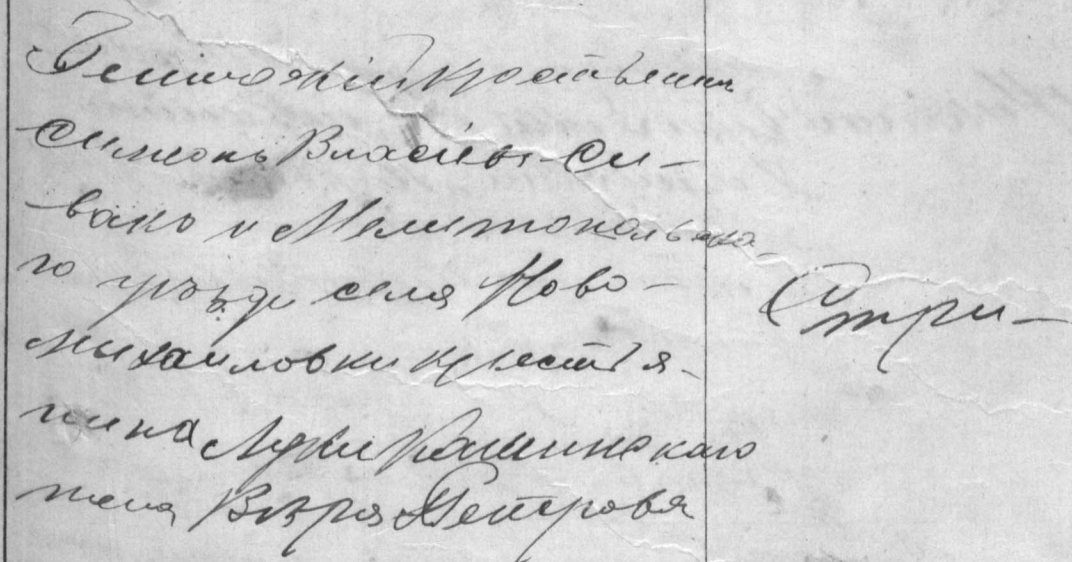 Геническій крестьянин
Симеонъ Власіевъ Си-
вако и Мелитопольска
го уѣзда села Ново-
михаиловки крестья-
нина Луки Калинскаго
жена Вѣра Петрова